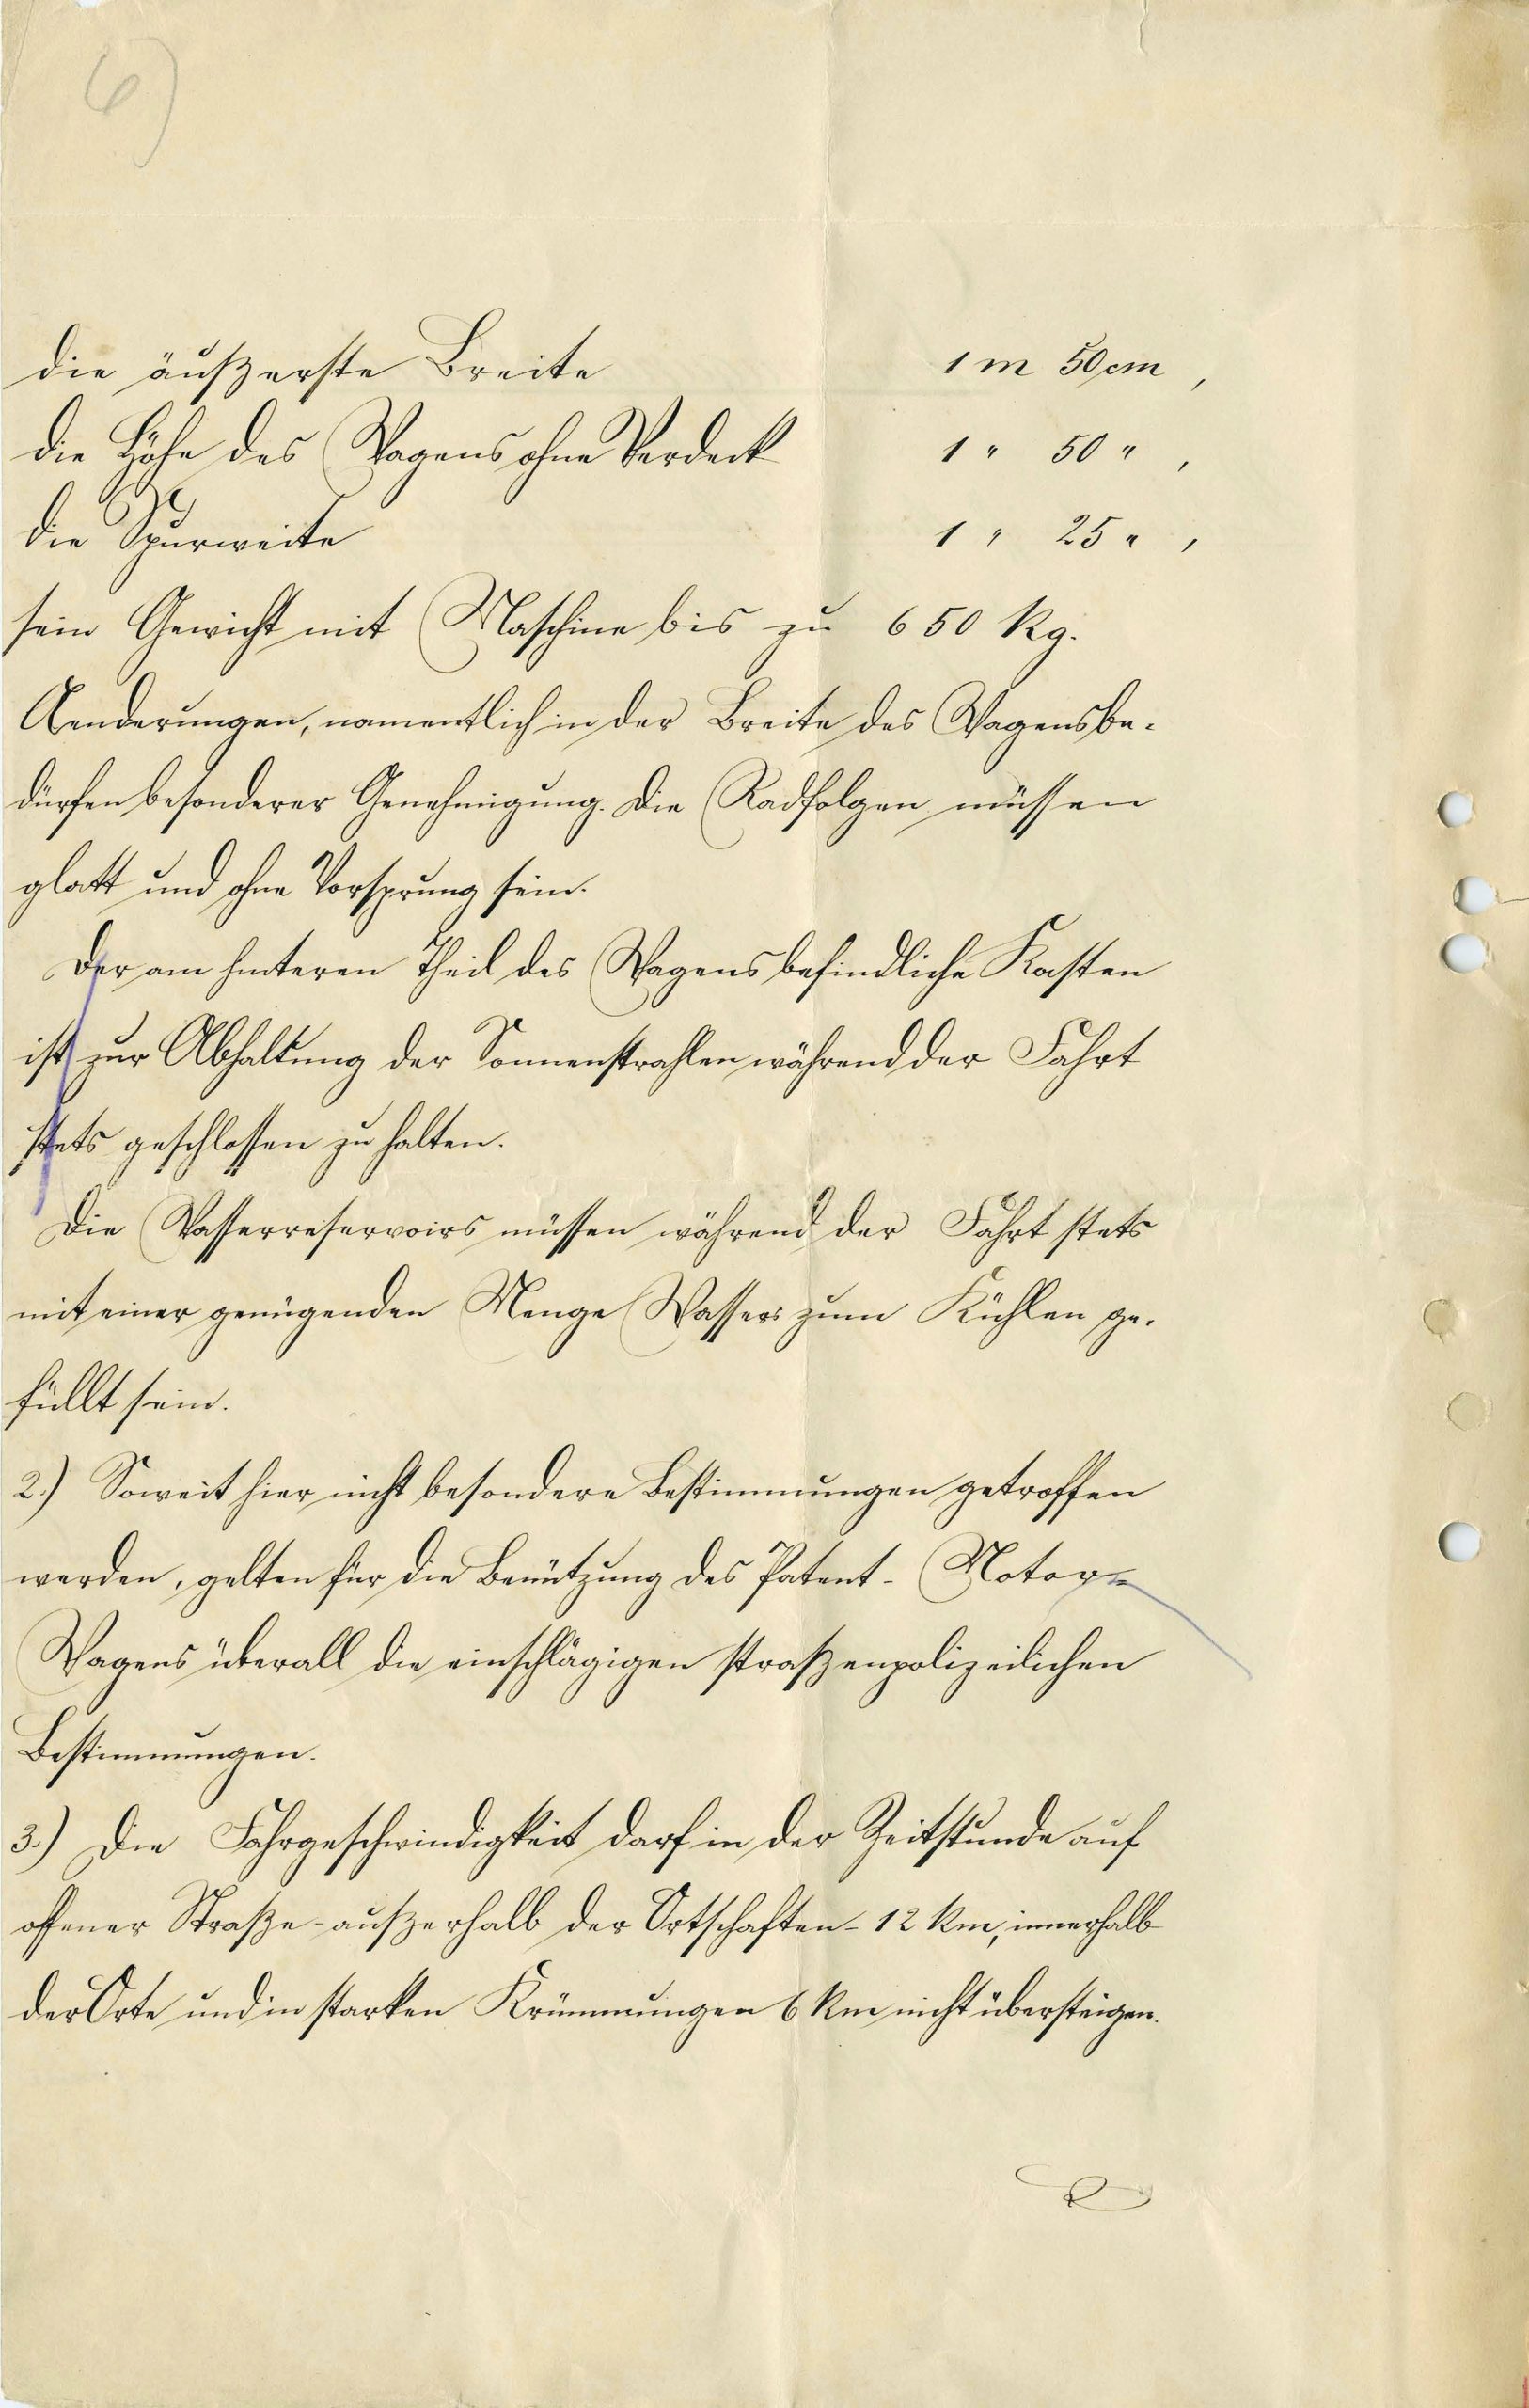 6)
die äußerste Breite 1 m 50 cm,
die Höhe des Wagens ohne Verdeck 1 " 50 " ,
die Spurweite 1 " 25 " ,
sein Gewicht mit Maschine bis zu 650 kg.
Aenderungen, namentlich in der Breite des Wagens be-
dürfen besonderer Genehmigung. Die Radfelgen müssen
glatt und ohne Vorsprung sein.
Der am hinteren Theil des Wagens befindliche Kasten
ist zur Abhaltung der Sonnenstrahlen während der Fahrt
stets geschlossen zu halten.
Die Wasserreservoirs müssen während der Fahrt stets
mit einer genügenden Menge Wassers zum Kühlen ge-
füllt sein.
2.) Soweit hier nicht besondere Bestimmungen getroffen
werden, gelten für die Benützung des Patent-Motor-
Wagens überall die einschlägigen straßenpolizeilichen
Bestimmungen.
3.) Die Fahrgeschwindigkeit darf in der Zeitstunde auf
offener Straße - außerhalb der Ortschaften - 12 km, innerhalb
der Orte und in starken Krümmungen 6 km nicht übersteigen.